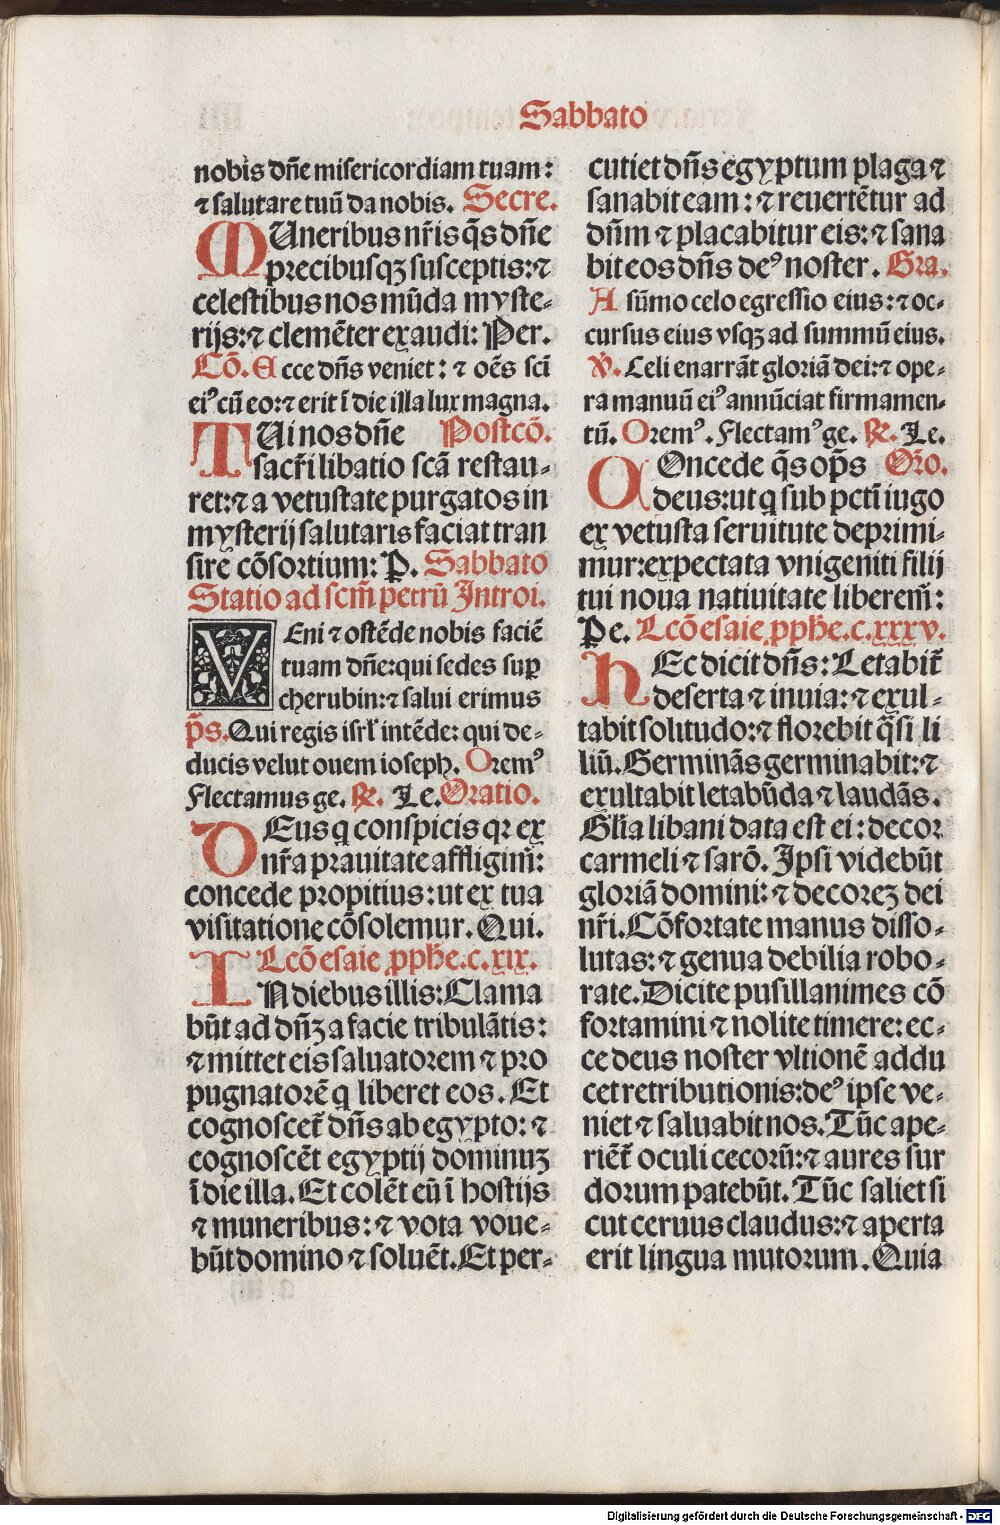 Sabbato
nobis dn̄e misericordiam tuam:
⁊ salutare tuū da nobis. Secre.
MUneribus nr̄is q̄s dn̄e
precibusqꝫ susceptis: ⁊
celestibus nos mūda myste-
rijs: ⁊ clemēter exaudi: Per.
Cō. Ecce dn̄s veniet: ⁊ oēs sci
eiꝰ cū eo: ⁊ erit ī die illa lux magna.
TUi nos dn̄e Postcō.
sacr̄i libatio scā restau-
ret: ⁊ a vetustate purgatos in
mysterij salutaris faciat tran
sire cōsortium: P. Sabbato
Statio ad scm̄ petrū Introi.
VEni ⁊ ostēde nobis faciē
tuam dn̄e: qui sedes suꝑ
cherubin: ⁊ salui erimus
p̄s. Qui regis isrl̄ intēde: qui de-
ducis velut ouem ioseph. Oremꝰ
Flectamus ge. ℟. Le. Oratio.
DEus q conspicis qꝛ ex
nr̄a prauitate affligim̄:
concede propitius: ut ex tua
visitatione cōsolemur. Qui.
Lcō esaie ꝓph̄e. c. xix.
IN diebus illis: Clama
būt ad dn̄ꝫ a facie tribulātis:
⁊ mittet eis saluatorem ⁊ pro
pugnatorē q liberet eos. Et
cognoscet̄ dn̄s ab egypto: ⁊
cognoscēt egyptij dominuꝫ
ī die illa. Et colēt eū ī hostijs
⁊ muneribus: ⁊ vota voue-
būt domino ⁊ soluēt. Et per-
cutiet dn̄s egyptum plaga ⁊
sanabit eam: ⁊ reuertētur ad
dn̄m ⁊ placabitur eis: ⁊ sana
bit eos dn̄s deꝰ noster. Gra.
A sūmo celo egressio eius: ⁊ oc-
cursus eius vsqꝫ ad summū eius.
℣. Celi enarrāt gloriā dei: ⁊ ope-
ra manuū eiꝰ annūciat firmamen-
tū. Oremꝰ. Flectamꝰ ge. ℟. Le.
COncede q̄s op̄s Oro.
deus: ut q sub pcti iugo
ex vetusta seruitute deprimi-
mur: expectata vnigeniti filij
tui noua natiuitate liberem̄:
Pe. Lcō esaie ꝓph̄e. c. xxxv.
HEc dicit dn̄s: Letabit̄
deserta ⁊ inuia: ⁊ exul-
tabit solitudo: ⁊ florebit q̄si li
liū. Germinās germinabit: ⁊
exultabit letabūda ⁊ laudās.
Glīa libani data est ei: decor
carmeli ⁊ sarō. Ipsi videbūt
gloriā domini: ⁊ decoreꝫ dei
nr̄i. Cōfortate manus disso-
lutas: ⁊ genua debilia robo-
rate. Dicite pusillanimes cō
fortamini ⁊ nolite timere: ec-
ce deus noster vltionē addu
cet retributionis: deꝰ ipse ve-
niet ⁊ saluabit nos. Tūc ape-
riēt̄ oculi cecorū: ⁊ aures sur
dorum patebūt. Tūc saliet si
cut ceruus claudus: ⁊ aperta
erit lingua mutorum. Quia
Digitalisierung gefördert durch die Deutsche Forschungsgemeinschaft - DFG